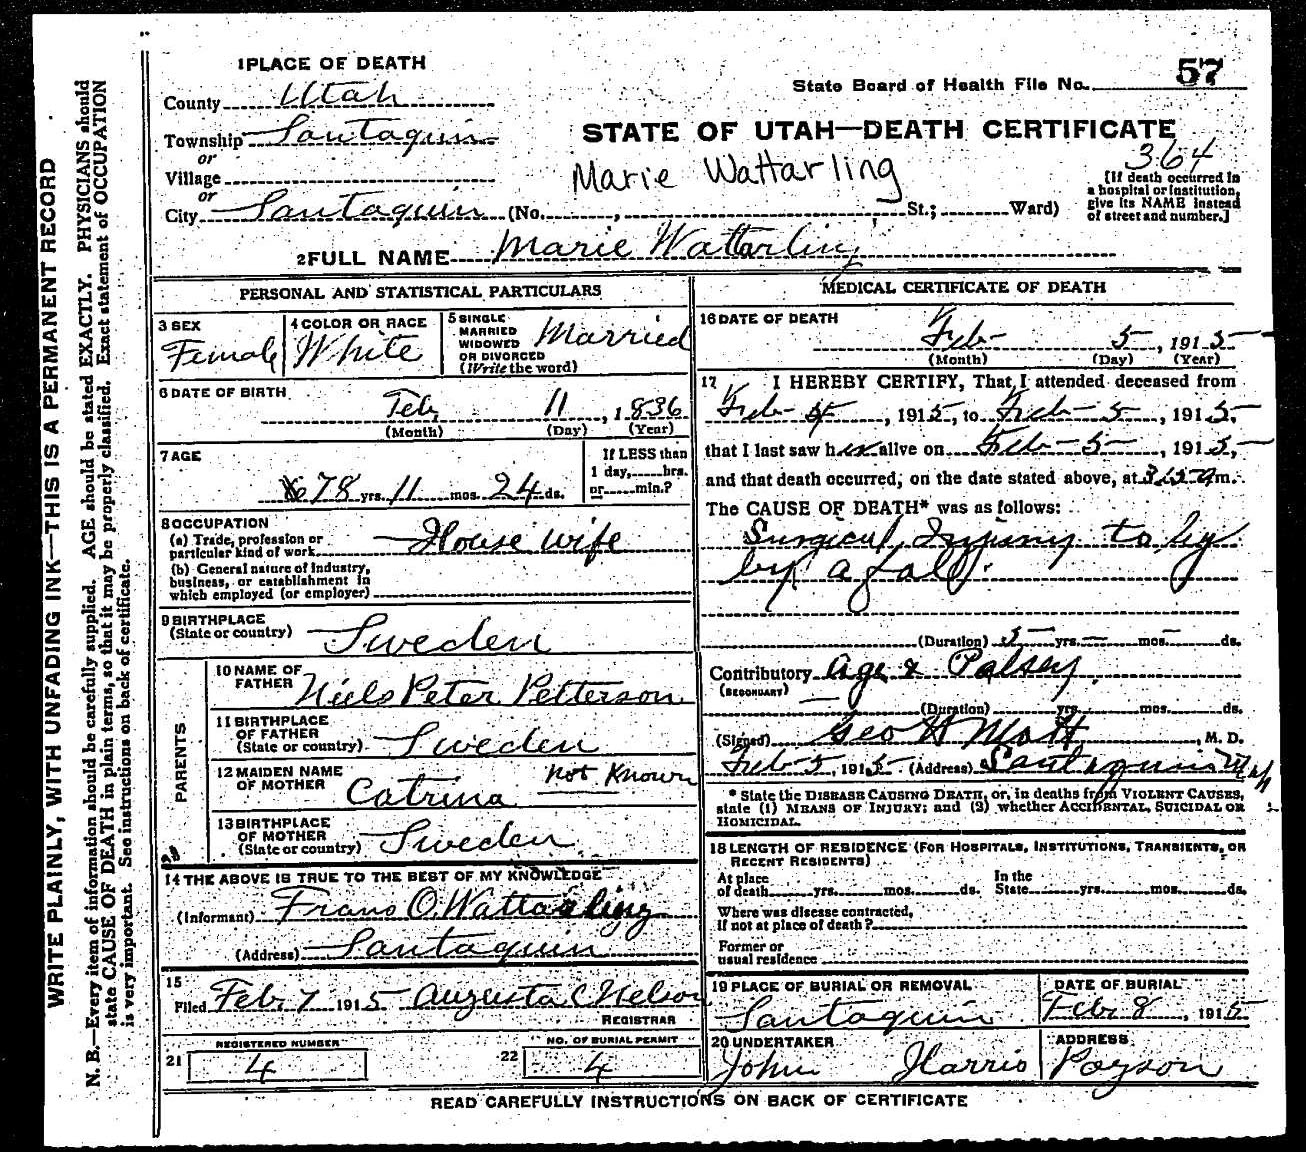 WRITE PLAINLY, WITH UNFADING INK—THIS IS A PERMANENT RECORD
N. B.—Every item of information should be carefully supplied. AGE should be stated EXACTLY. PHYSICIANS should
state CAUSE OF DEATH in plain terms, so that it may be properly classified. Exact statement of OCCUPATION
is very important. See instructions on back of certificate.
1 PLACE OF DEATH
County Utah
Township Santaquin
or
Village
or
City Santaquin (No. , St.; Ward)
State Board of Health File No. 57
STATE OF UTAH—DEATH CERTIFICATE
364
Marie Wattarling
[If death occurred in
a hospital or institution,
give its NAME instead
of street and number.]
2 FULL NAME Marie Wattarling
PERSONAL AND STATISTICAL PARTICULARS
3 SEX
Female
4 COLOR OR RACE
White
5 SINGLE
MARRIED
WIDOWED
OR DIVORCED
(Write the word)
Married
6 DATE OF BIRTH
Feb, 11, 1836
(Month) (Day) (Year)
7 AGE
78 yrs. 11 mos. 24 ds.
If LESS than
1 day, hrs.
or min.?
8 OCCUPATION
(a) Trade, profession or
particular kind of work House wife
(b) General nature of Industry,
business, or establishment in
which employed (or employer)
9 BIRTHPLACE
(State or country) Sweden
PARENTS
10 NAME OF
FATHER Niels Peter Petterson
11 BIRTHPLACE
OF FATHER
(State or country) Sweden
12 MAIDEN NAME
OF MOTHER Catrina not Known
13 BIRTHPLACE
OF MOTHER
(State or country) Sweden
14 THE ABOVE IS TRUE TO THE BEST OF MY KNOWLEDGE
(Informant) Frans O. Wattarling
(Address) Santaquin
15
Filed Feb 7 1915 Augusta C Nelson
REGISTRAR
21 REGISTERED NUMBER
4
22 NO. OF BURIAL PERMIT
4
MEDICAL CERTIFICATE OF DEATH
16 DATE OF DEATH
Feb- 5, 1915
(Month) (Day) (Year)
17 I HEREBY CERTIFY, That I attended deceased from
Feb- , 1915, to Feb- 5, 1915,
that I last saw her alive on Feb- 5, 1915,
and that death occurred, on the date stated above, at m.
The CAUSE OF DEATH* was as follows:
Surgical Injury to by
by a fall.
(Duration) 5 yrs. mos. ds.
Contributory Age & Palsey.
(SECONDARY)
(Duration) yrs. mos. ds.
(Signed) Geo H Mott, M. D.
Feb 5, 1915 (Address) Santaquin Utah
* State the DISEASE CAUSING DEATH, or, in deaths from VIOLENT CAUSES,
state (1) MEANS OF INJURY; and (2) whether ACCIDENTAL, SUICIDAL OR
HOMICIDAL.
18 LENGTH OF RESIDENCE (FOR HOSPITALS, INSTITUTIONS, TRANSIENTS, OR
RECENT RESIDENTS)
At place
of death yrs. mos. ds.
In the
State yrs. mos. ds.
Where was disease contracted,
If not at place of death?
Former or
usual residence
19 PLACE OF BURIAL OR REMOVAL
Santaquin
DATE OF BURIAL
Feb 8, 1915
20 UNDERTAKER
John Harris
ADDRESS
Payson
READ CAREFULLY INSTRUCTIONS ON BACK OF CERTIFICATE